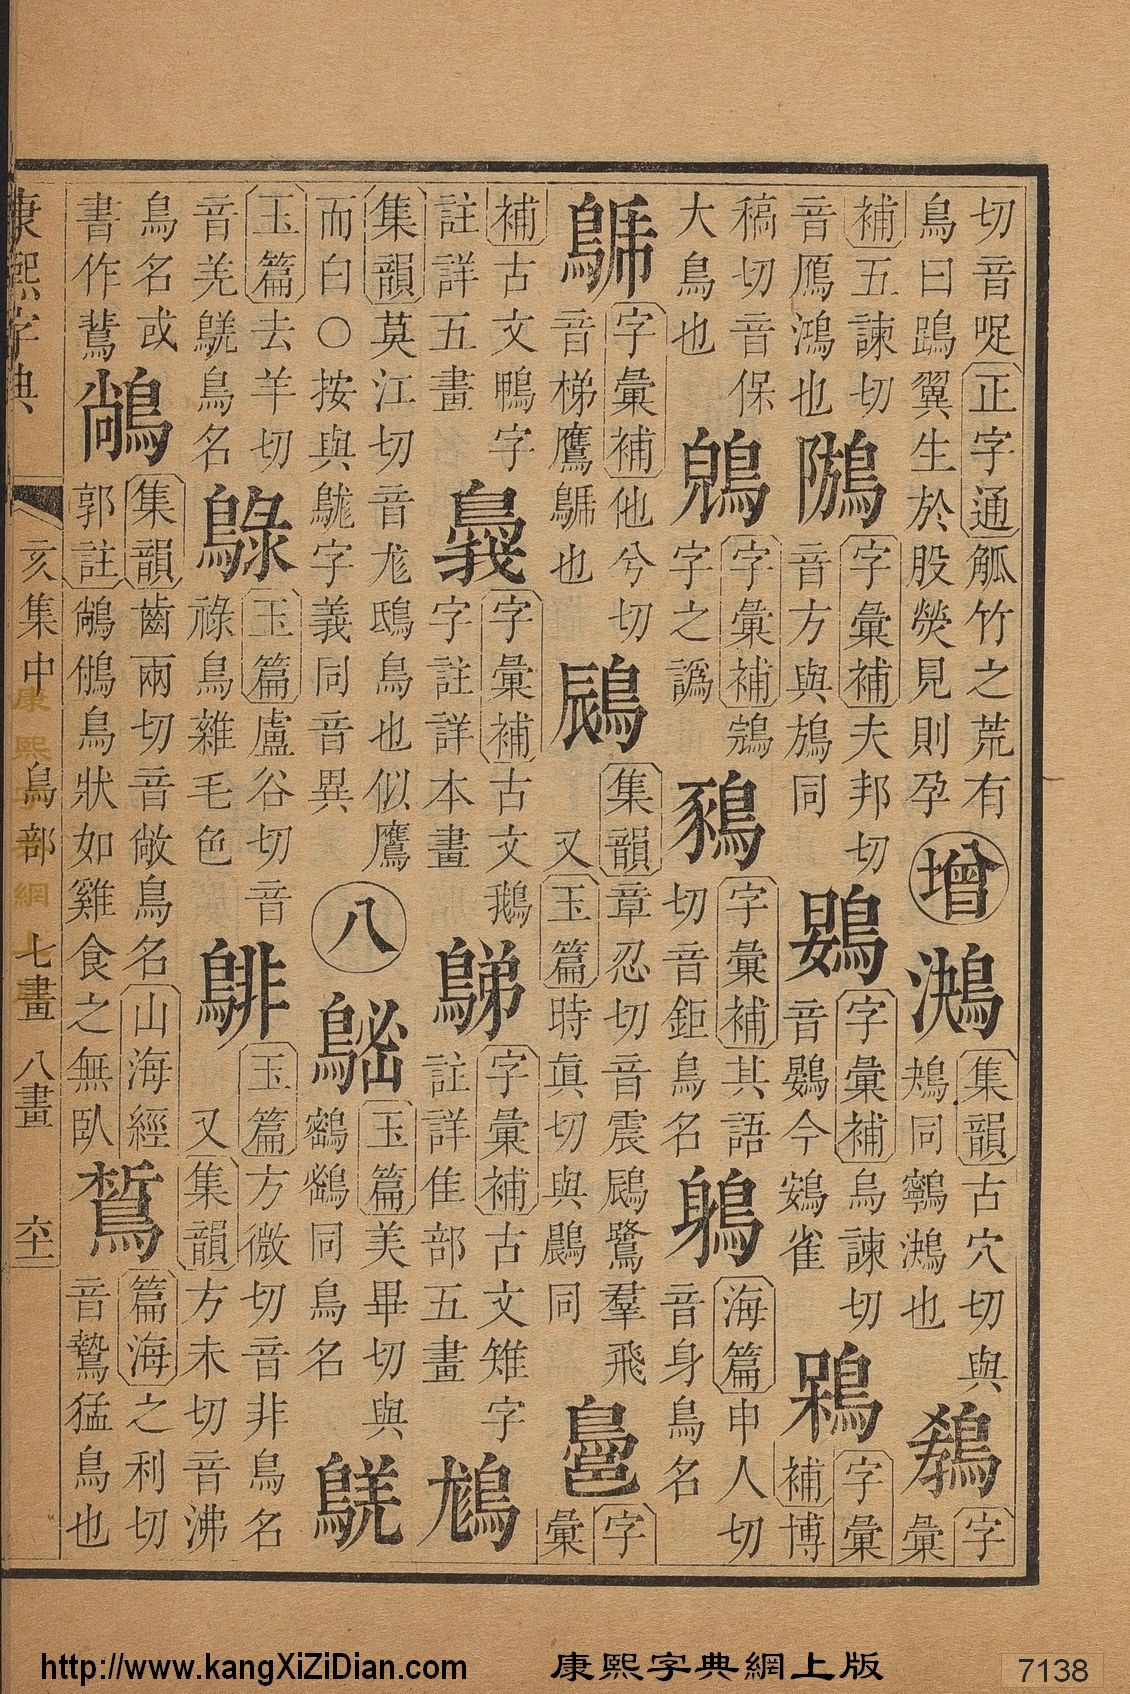 切音哫正字通觚竹之荒有
鳥曰翼生於股熒見則孕
增
集韻古穴切與
鴂同鸋也
字
彙
補五諫切
音鴈鴻也
字彙補夫邦切
音方與鴋同
字彙補烏諫切
音鷃今鴳雀
字彙
補博
稿切音保
大鳥也
字彙補
字之譌
字彙補其語
切音鉅鳥名
海篇申人切
音身鳥名
字彙補他兮切
音梯鷹也
䳲
集韻章忍切音震䳲鷺羣飛
又玉篇時眞切與鷐同
字
彙
補古文鴨字
註詳五畫
字彙補古文鵝
字註詳本畫
字彙補古文雉字
註詳隹部五畫
集韻莫江切音尨鴟鳥也似鷹
而白○按與字義同音異
八
玉篇美畢切與
同鳥名
玉篇去羊切
音羌鳥名
玉篇盧谷切音
祿鳥雜毛色
玉篇方微切音非鳥名
又集韻方未切音沸
鳥名或
書作
集韻齒兩切音敞鳥名山海經
郭註鳥狀如雞食之無臥
篇海之利切
音鷙猛鳥也
康熙字典
亥集中
鳥部
七畫
八畫
康熙字典網上版
http://www.kangXiZiDian.com
康熙字典網上版
7138